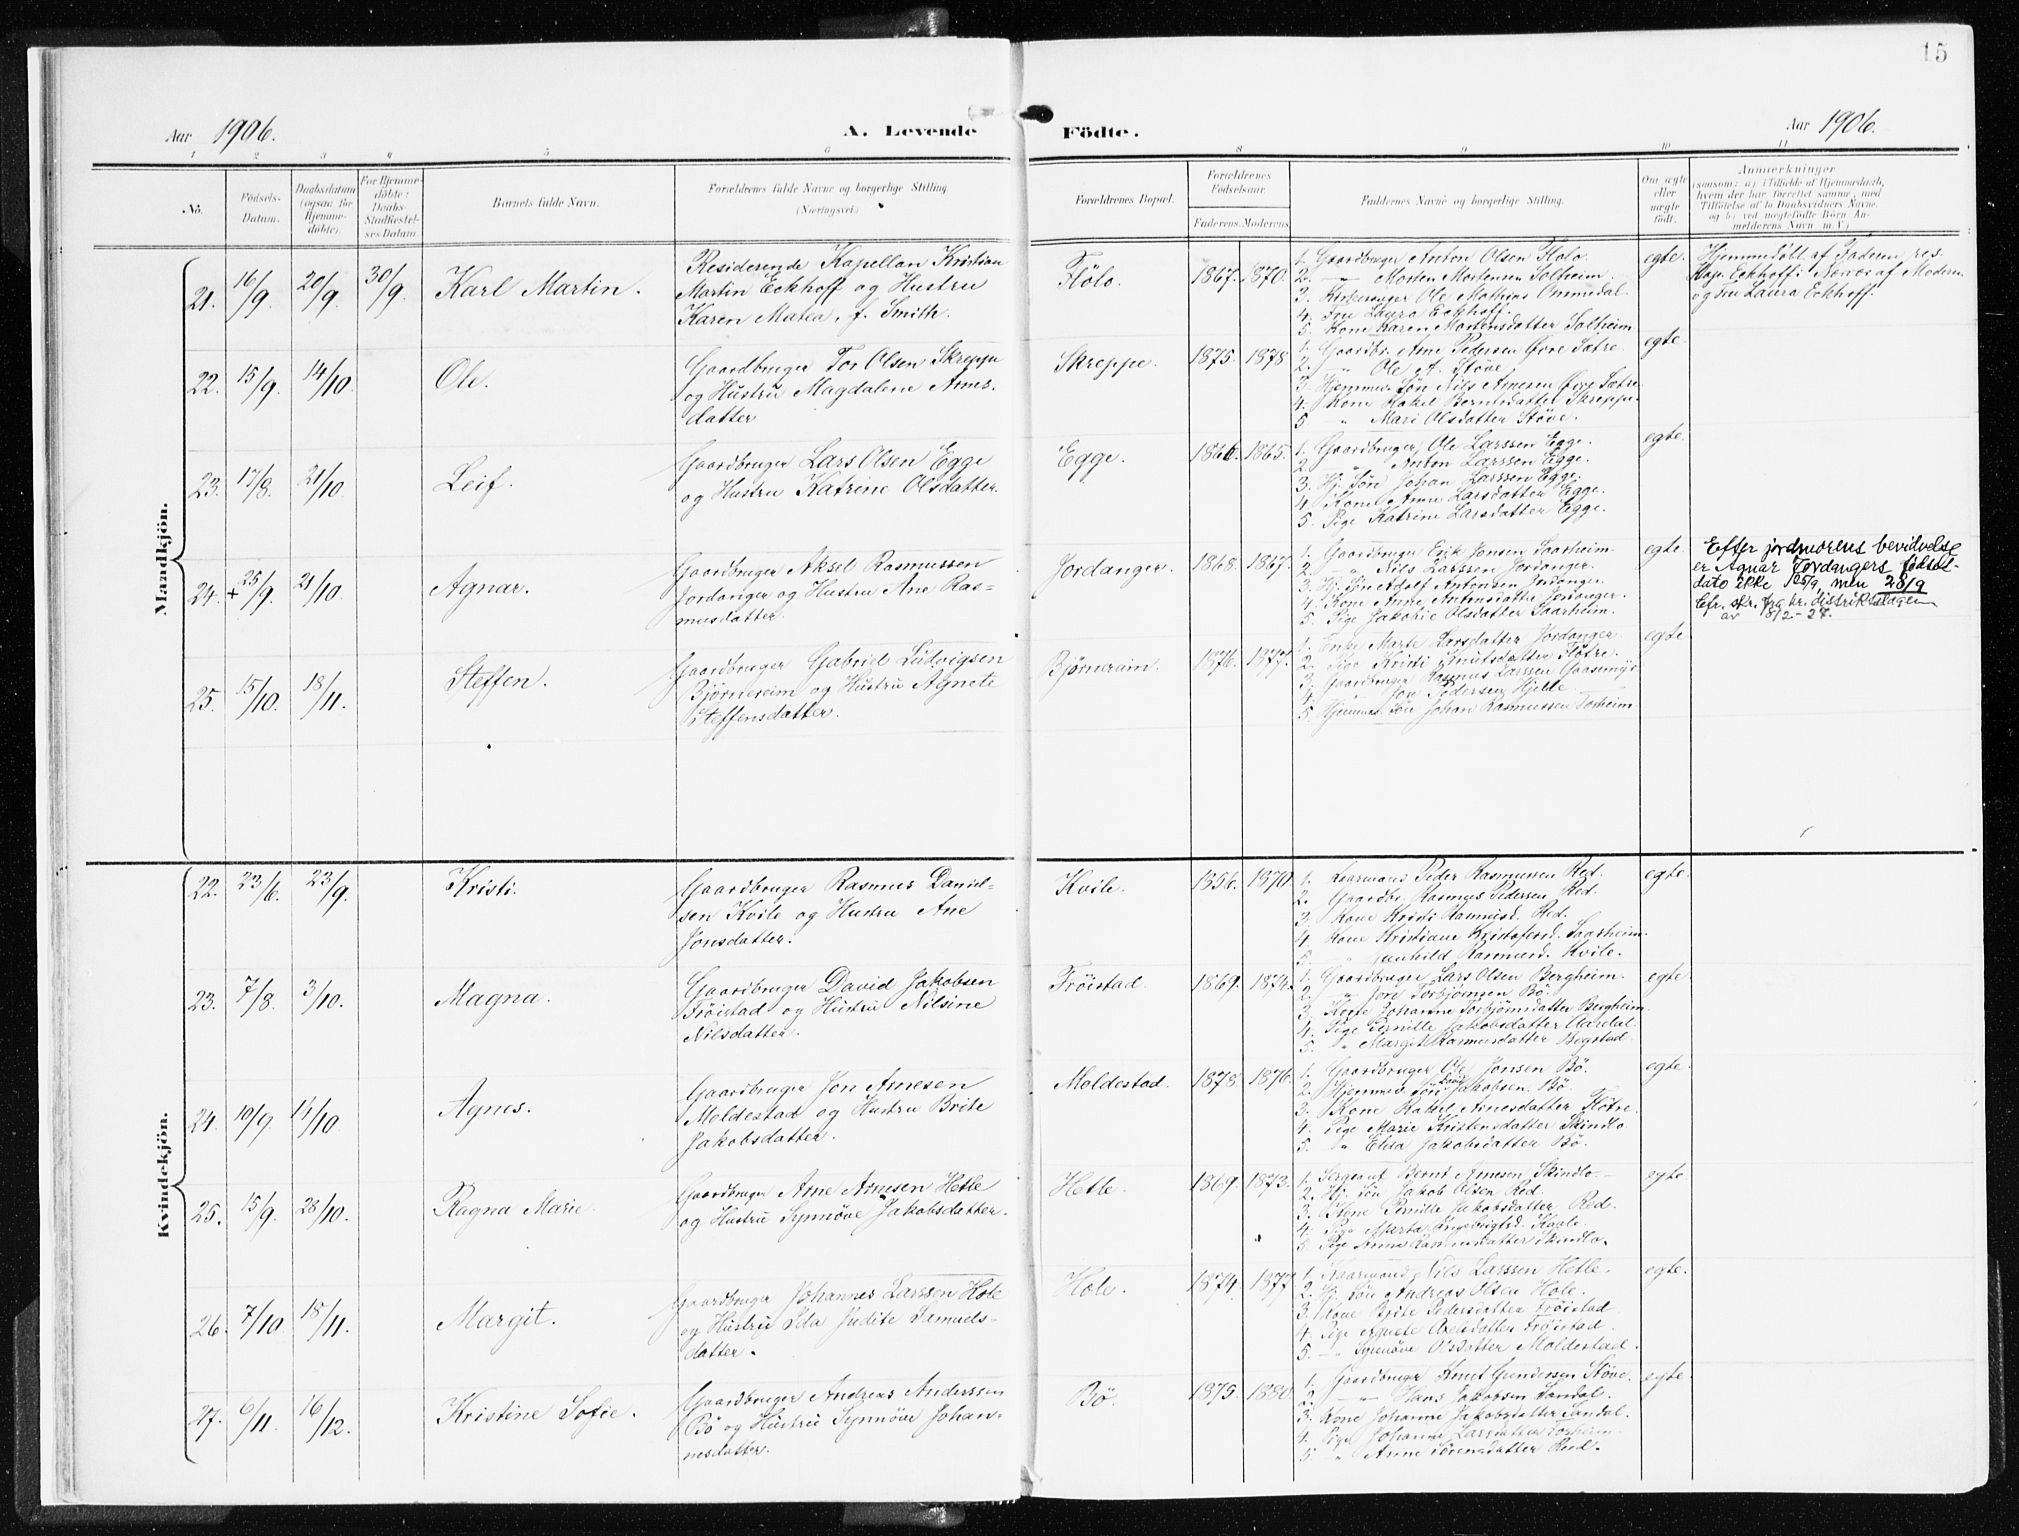 15
Aar 1906.
A. Levende
Födte.
Aar 1906.
1 2 3 4 5 6 8 9 10 11
No.
Födsels-Datum.
Daabsdatum (ogsaa for Hjemmedöbte).
For Hjemmedöbte: Daabs-Stadfestelses Datum.
Barnets fulde Navn.
Forældrenes fulde Navne og borgerlige Stilling
(Næringsvei.)
Forældrenes Bopæl.
Forældrenes Födselsaar.
Faderens. Moderens.
Faddernes Navne og borgerlige Stilling.
Om ægte eller uægte födt.
Anmærkninger
(saasom: a) i Tilfælde af Hjemmedaab, hvem der har forrettet samme, med Tilföielse af to Daabsvidners Navne, og b) ved uægtefödte Börn Anmelderens Navn m. V.)
Mandkjön.
21. 16/9 20/9 30/9 Karl Martin.
Residerende Kapellan Kristian
Martin Eckhoff og Hustru
Karen Matea, f. Smith.
Flölo. 1867. 1870.
1. Gaardbruger Anton Olsen Flolo.
2. — Morten Mortensen Solheim.
3. Kirkesanger Ole Mathias Ommedal.
4. Fru Laura Eckhoff.
5. Kone Karen Mortensdatter Solheim
egte.
Hjemmedöbt af Faderen, res.
Kap. Eckhoff i Nærvær af Modern
og Fru Laura Eckhoff.
22. 15/9 14/10 Ole.
Gaardbruger Tor Olsen Skreppe
og Hustru Magdalene Arnes-
datter
Skreppe. 1875. 1878.
1. Gaardbr. Arne Pedersen Övre Sætre
2. " Ole A. Støve
3. Hjemmev. Sön Nils Arnesen Övre Sætre
4. Kone Rakel Berntsdatter Skreppe.
5 " Mari Olsdatter Støve.
egte.
23. 17/8 21/10 Leif.
Gaardbruger Lars Olsen Egge
og Hustru Katrine Olsdatter.
Egge. 1866. 1865.
1. Gaardbruger Ole Larssen Egge.
2. " Anton Larssen Egge.
3. Hj. Søn Johan Larssen Egge.
4. Kone Anne Larsdatter Egge.
5. Pige Katrine Larsdatter Egge.
egte.
24. + 25/9 21/10 Agnar.
Gaardbruger Aksel Rasmussen
Jordanger og Hustru Ane Ras-
musdatter.
Jordanger. 1868. 1867.
1. Gaardbruger Erik Jonsen Saarheim.
2. " Nils Larssen Jordanger.
3. Hj. Søn Adolf Antonsen Jordanger
4. Kone Anne Antonsdatter Jordanger.
5. Pige Jakobie Olsdatter Saarheim.
egte.
Efter jordmorens bevidnelse
er Agnar Jordangers födsels-
dato ikke 25/9, men 28/9
Cfr. skr. fra hr. distriktslægen
av 18/2-27.
25. 15/10. 18/11. Steffen.
Gaardbruger Gabriel Ludvigsen
Bjørnereim og Hustru Agnete
Steffensdatter.
Bjørnereim. 1876. 1877.
1. Enke Marte Larsdatter Jordanger.
2. Pige Kristi Knutsdatter Fløtre.
3. Gaardbruger Rasmus Larssen Gaasemyr
4. " Jon Pedersen Hjelle
5. Hjemmev. Søn Johan Rasmussen Torheim
egte.
Kvindekjön.
22. 23/6. 23/9. Kristi.
Gaardbruger Rasmus Daniel-
sen Kvile og Hustru Ane
Jonsdatter.
Kvile. 1856. 1870.
1. Kaarmand Peder Rasmussen Red.
2. Gaardbr. Rasmus Pedersen Red.
3. Kone Kristi Rasmusd. Red.
4. Kone Kristiane Kristofersd. Saarheim.
5. " Gunhild Rasmusd. Kvile.
egte.
23. 7/8. 3/10. Magna.
Gaardbruger David Jakobsen
Frøistad og Hustru Nilsine
Nilsdatter.
Frøistad 1869. 1874.
1. Gaardbruger Lars Olsen Bergheim.
2. " Jore Torbjørnsen Bö.
3. Kone Johanne Torbjørnsdatter Bergheim
4. Pige Pernille Jakobsdatter Aardal.
5. " Margit Rasmusdatter Bogstad.
egte
24. 19/9 14/10 Agnes.
Gaardbruger Jon Arnesen
Moldestad og Hustru Brite
Jakobsdatter.
Moldestad. 1878. 1876.
1. Gaardbruger Ole Jonsen Bö.
2. Hjemmev. Søn Jakobsen Bö.
3. Kone Rakel Arnesdatter Fløtre.
4. Pige Marie Kristensdatter Skindlo
5. " Elisa Jakobsdatter Bö.
egte.
25. 15/9. 28/10. Ragna Marie.
Gaardbruger Arne Arnesen Hetle
og Hustru Synnøve Jakobsdatter.
Hetle. 1869. 1873.
1. Sergeant Bernt Arnesen Skindlo
2. Hj. Søn Jakob Olsen Red.
3. Kone Pernille Jakobsdatter Red.
4. Pige Marta Ingebrigtsd. Kaale.
5. Pige Anna Rasmusdatter Skindlo.
egte
26. 7/10. 18/11. Margit.
Gaardbruger Johannes Larssen Hole
og Hustru Ida Judite Samuels-
datter.
Hole. 1874. 1877.
1. Kaarmand Nils Larssen Hetle.
2. Hj. Søn Andreas Olsen Hole.
3. Kone Brite Pedersdatter Frøistad.
4. Pige Agnete Axelsdatter Frøistad.
5. — Synnøve Olsdatter Moldestad.
egte.
27. 6/11. 16/12. Kristine Sofie.
Gaardbruger Andreas Anderssen
Bö og Hustru Synnøve Johan-
nesdatter.
Bö. 1875. 1880.
1. Gaardbruger Knut Gundersen Støve.
2. — Hans Jakobsen Sandal.
3. Kone Johanne Jakobsdatter Sandal.
4. Pige Johanne Larsdatter Torheim.
5. " Anne Sørensdatter Red.
egte.